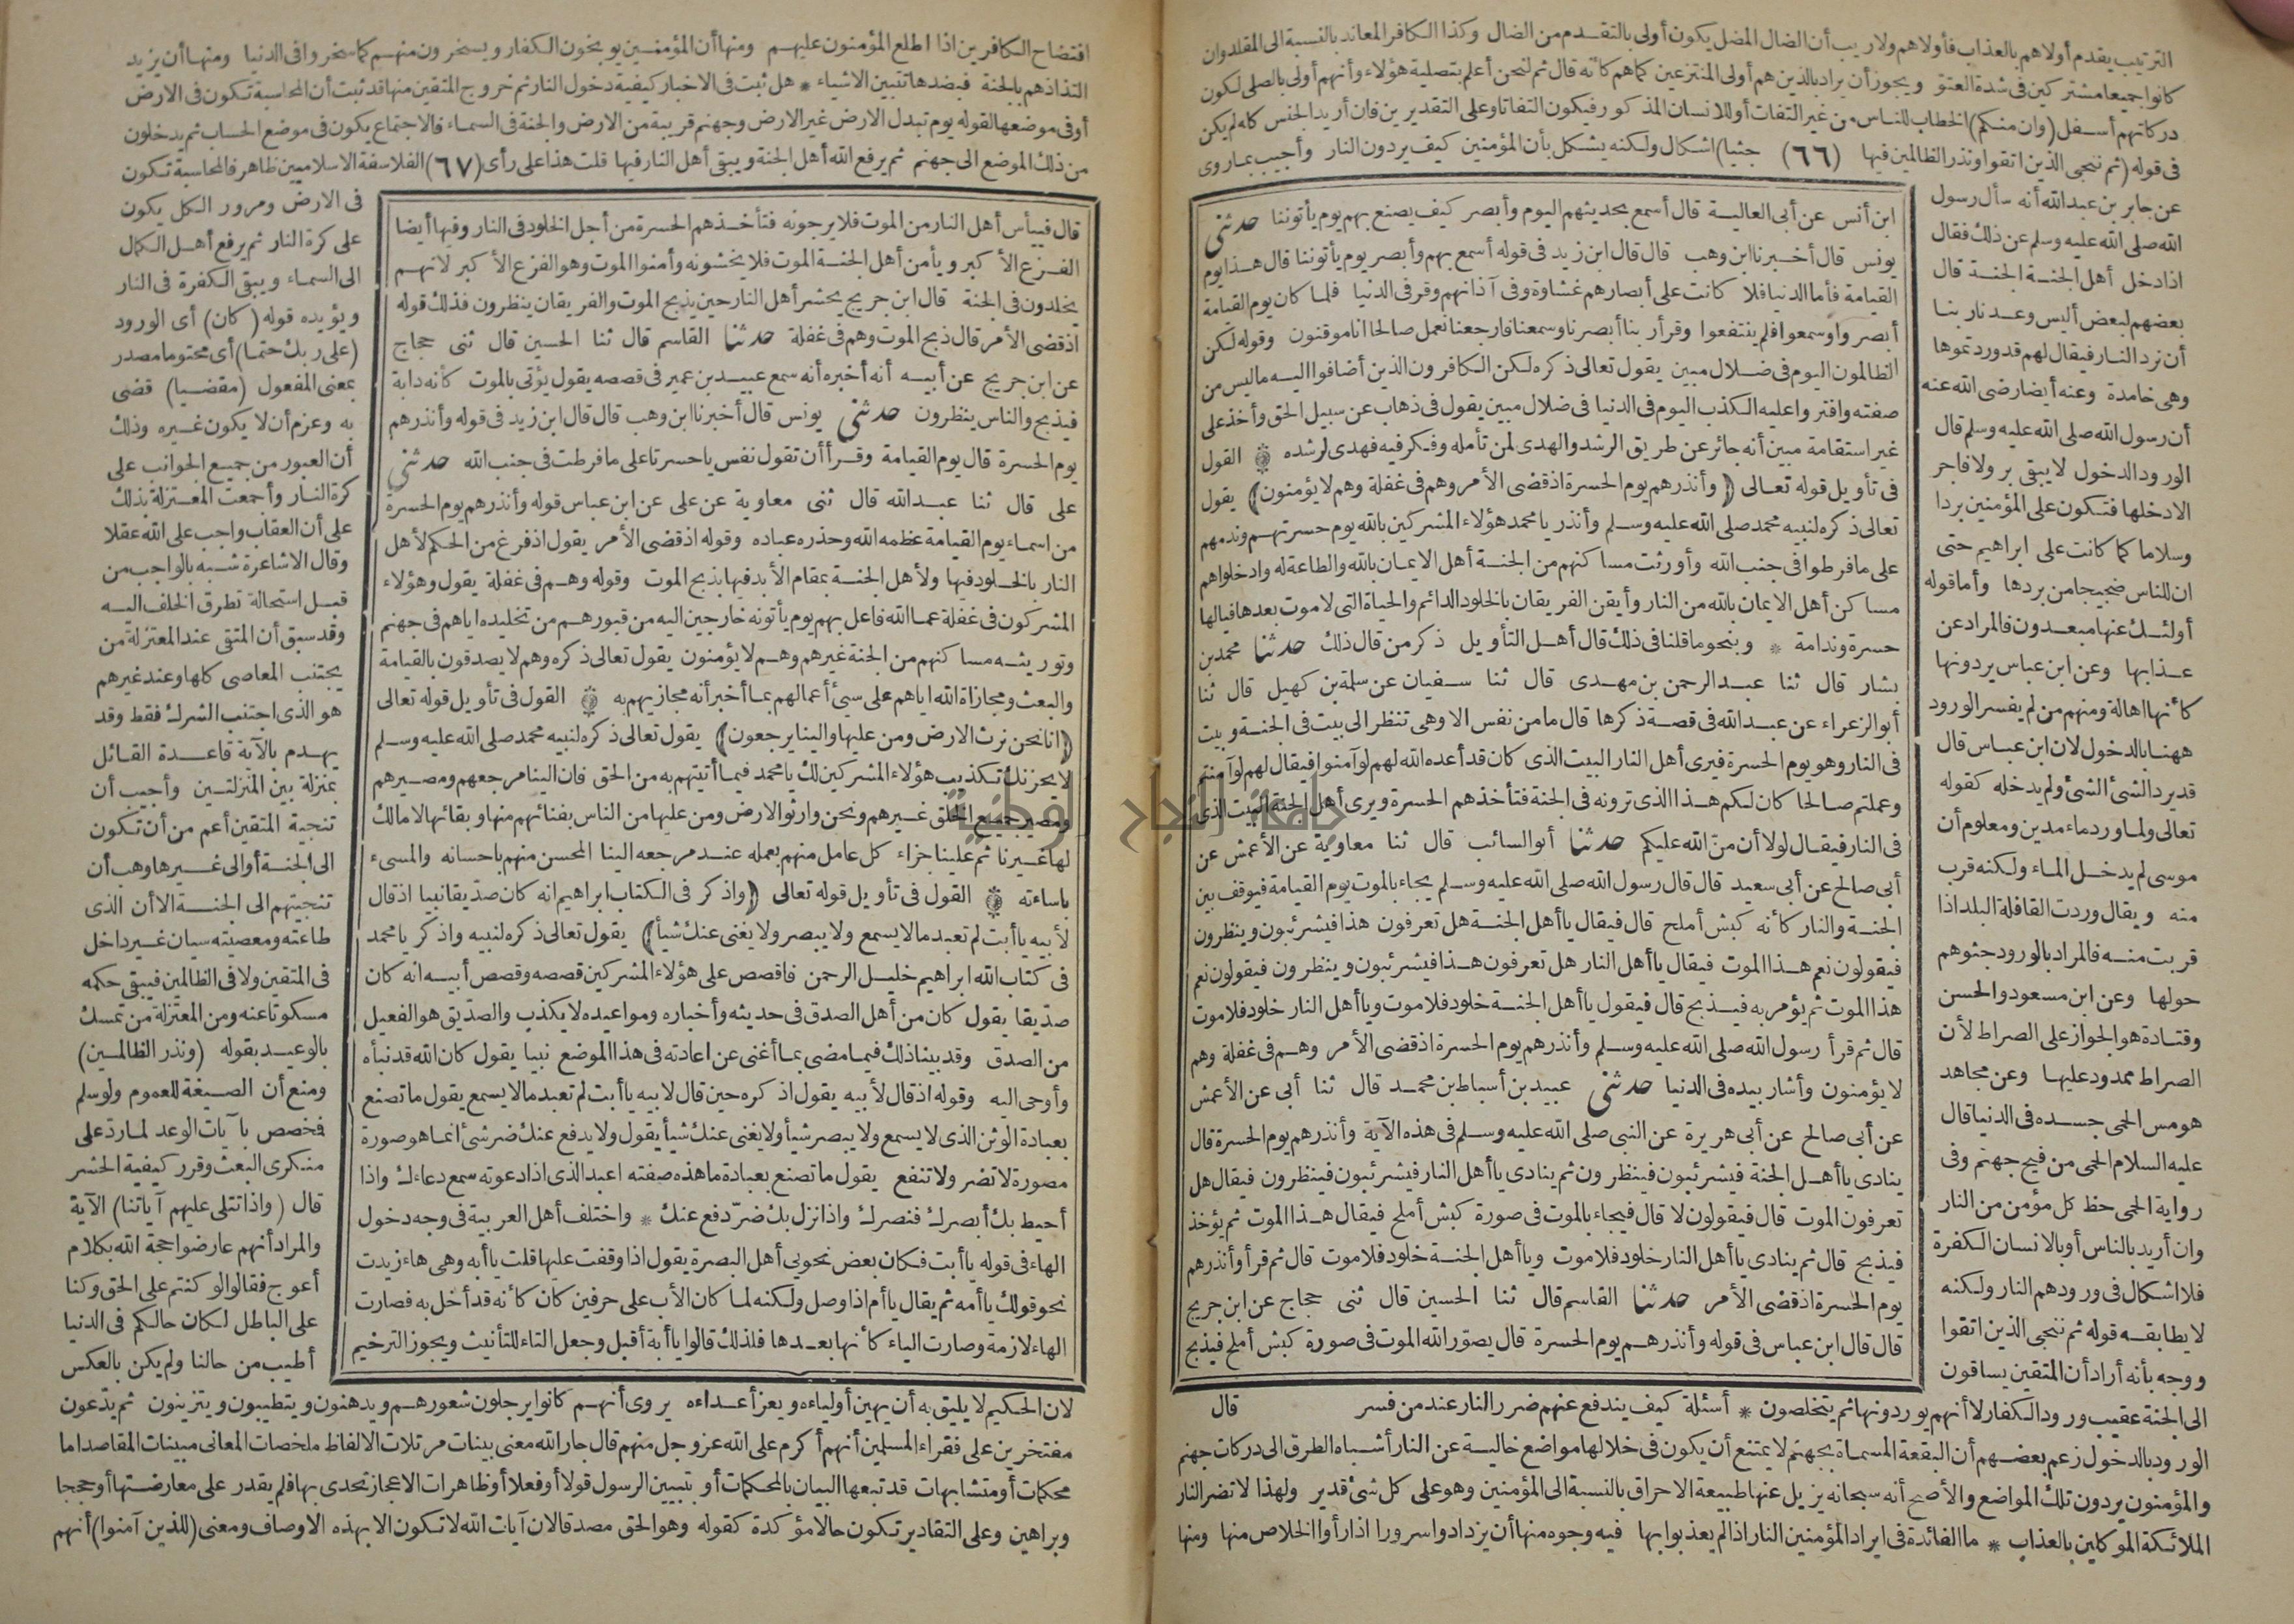 الترتيب يقدم أولاهم بالعذاب فأولاهم ولاريب أن الضال المضل يكون أولى بالتقدم من الضال وكذا الكافر المعاند بالنسبة الى المقلدوان
كانوا جميعا مشتركين فى شدة العتق ويجوز أن يراد بالذين هم أولى المنتزعين كماهم كأنه قال ثم لنحن أعلم بتصلية هؤلاء وأنهم أولى بالصلى لكون
دركاتهم أسفل (وان منكم) الخطاب للناس من غير التفات أو للانسان المذكور فيكون التفاتا وعلى التقديرين فان أريد الجنس كله لم يكن
فى قوله (ثم ننجى الذين اتقوا ونذر الظالمين فيها (٦٦) جثيا) اشكال ولكنه يشكل بأن المؤمنين كيف يردون النار وأجيب بما روى
عن جابر بن عبد الله أنه سأل رسول
الله صلى الله عليه وسلم عن ذلك فقال
اذا دخل أهل الجنة الجنة قال
بعضهم لبعض أليس وعدنا ربنا
أن نرد النار فيقال لهم قدوردتموها
وهى خامدة وعنه أيضا رضى الله عنه
أن رسول الله صلى الله عليه وسلم قال
الورود الدخول لا يبقى بر ولا فاجر
الا دخلها فتكون على المؤمنين بردا
وسلاما كما كانت على ابراهيم حتى
ان للناس ضجيجا من بردها وأما قوله
أولئك عنها مبعدون فالمراد عن
عذابها وعن ابن عباس يردونها
كأنها اهالة ومنهم من لم يفسر الورود
ههنا بالدخول لان ابن عباس قال
قد يرد الشئ الشئ ولم يدخله كقوله
تعالى ولما ورد ماء مدين ومعلوم أن
موسى لم يدخل الماء ولكنه قرب
منه ويقال وردت القافلة البلد اذا
قربت منه فالمراد بالورود جثوهم
حولها وعن ابن مسعود والحسن
وقتادة هو الجواز على الصراط لأن
الصراط ممدود عليها وعن مجاهد
هو مس الحمى جسده فى الدنيا قال
عليه السلام الحمى من فيح جهنم وفى
رواية الحمى حظ كل مؤمن من النار
وان أريد بالناس أو بالانسان الكفرة
فلا اشكال فى ورودهم النار ولكنه
لا يطابقه قوله ثم ننجى الذين اتقوا
ووجه بأنه أراد أن المتقين يساقون
ابن أنس عن أبى العالية قال أسمع بحديثهم اليوم وأبصر كيف يصنع بهم يوم يأتوننا حدثنى
يونس قال أخبرنا ابن وهب قال قال ابن زيد فى قوله أسمع بهم وأبصر يوم يأتوننا قال هذا يوم
القيامة فأما الدنيا فلا كانت على أبصارهم غشاوة وفى آذانهم وقر فى الدنيا فلما كان يوم القيامة
أبصروا وسمعوا فلم ينتفعوا وقرأ ربنا أبصرنا وسمعنا فارجعنا نعمل صالحا انا موقنون وقوله لكن
الظالمون اليوم فى ضلال مبين يقول تعالى ذكره لكن الكافرون الذين أضافوا اليه ما ليس من
صفته وافتروا عليه الكذب اليوم فى الدنيا فى ضلال مبين يقول فى ذهاب عن سبيل الحق وأخذ على
غير استقامة مبين أنه جائر عن طريق الرشد والهدى لمن تأمله وفكر فيه فهدى لرشده ۞ القول
فى تأويل قوله تعالى (وأنذرهم يوم الحسرة اذ قضى الأمر وهم فى غفلة وهم لا يؤمنون) يقول
تعالى ذكره لنبيه محمد صلى الله عليه وسلم وأنذر يا محمد هؤلاء المشركين بالله يوم حسرتهم وندمهم
على ما فرطوا فى جنب الله وأورثت مساكنهم من الجنة أهل الايمان بالله والطاعة له وادخلوا هم
مساكن أهل الايمان بالله من النار وأيقن الفريقان بالخلود الدائم والحياة التى لا موت بعدها فيالها
حسرة وندامة * وبنحو ما قلنا فى ذلك قال أهل التأويل ذكر من قال ذلك حدثنا محمد بن
بشار قال ثنا عبد الرحمن بن مهدى قال ثنا سفيان عن سلمة بن كهيل قال ثنا
أبو الزعراء عن عبد الله فى قصة ذكرها قال ما من نفس الا وهى تنظر الى بيت فى الجنة وبيت
فى النار وهو يوم الحسرة فيرى أهل النار البيت الذى كان قد أعده الله لهم لو آمنوا فيقال لهم لو آمنتم
وعملتم صالحا كان لكم هذا الذى ترونه فى الجنة فتأخذهم الحسرة ويرى أهل الجنة البيت الذى
فى النار فيقال لولا أن من الله عليكم حدثنا أبو السائب قال ثنا معاوية عن الأعمش عن
أبى صالح عن أبى سعيد قال قال رسول الله صلى الله عليه وسلم يجاء بالموت يوم القيامة فيوقف بين
الجنة والنار كأنه كبش أملح قال فيقال يا أهل الجنة هل تعرفون هذا فيشرئبون وينظرون
فيقولون نعم هذا الموت فيقال يا أهل النار هل تعرفون هذا فيشرئبون وينظرون فيقولون نعم
هذا الموت ثم يؤمر به فيذبح قال فيقول يا أهل الجنة خلود فلا موت ويا أهل النار خلود فلا موت
قال ثم قرأ رسول الله صلى الله عليه وسلم وأنذرهم يوم الحسرة اذ قضى الأمر وهم فى غفلة وهم
لا يؤمنون وأشار بيده فى الدنيا حدثنى عبيد بن أسباط بن محمد قال ثنا أبى عن الأعمش
عن أبى صالح عن أبى هريرة عن النبى صلى الله عليه وسلم فى هذه الآية وأنذرهم يوم الحسرة قال
ينادى يا أهل الجنة فيشرئبون فينظرون ثم ينادى يا أهل النار فيشرئبون فينظرون فيقال هل
تعرفون الموت قال فيقولون لا قال فيجاء بالموت فى صورة كبش أملح فيقال هذا الموت ثم يؤخذ
فيذبح قال ثم ينادى يا أهل النار خلود فلا موت ويا أهل الجنة خلود فلا موت قال ثم قرأ وأنذرهم
يوم الحسرة اذ قضى الأمر حدثنا القاسم قال ثنا الحسين قال ثنى حجاج عن ابن جريج
قال قال ابن عباس فى قوله وأنذرهم يوم الحسرة قال يصور الله الموت فى صورة كبش أملح فيذبح
قال
الى الجنة عقيب ورود الكفار لا أنهم يوردونها ثم يتخلصون * أسئلة كيف يندفع عنهم ضرر النار عند من فسر
الورود بالدخول زعم بعضهم أن البقعة المسماة بجهنم لا يمتنع أن يكون فى خلالها مواضع خالية عن النار أشباه الطرق الى دركات جهنم
والمؤمنون يردون تلك المواضع والأصح أنه سبحانه يزيل عنها طبيعة الاحراق بالنسبة الى المؤمنين وهو على كل شئ قدير ولهذا لا تضر النار
الملائكة الموكلين بالعذاب * ما الفائدة فى ايراد المؤمنين النار اذا لم يعذبوا بها فيه وجوه منها أن يزدادوا سرورا اذا رأوا الخلاص منها ومنها
افتضاح الكافرين اذا اطلع المؤمنون عليهم ومنها أن المؤمنين يوبخون الكفار ويسخرون منهم كما سخروا فى الدنيا ومنها أن يزيد
التذاذهم بالجنة فبضدها تتبين الاشياء * هل ثبت فى الاخبار كيفية دخول النار ثم خروج المتقين منها قد ثبت أن المحاسبة تكون فى الارض
أو فى موضعها لقوله يوم تبدل الارض غير الارض وجهنم قريبة من الارض والجنة فى السماء فالاجتماع يكون فى موضع الحساب ثم يدخلون
من ذلك الموضع الى جهنم ثم يرفع الله أهل الجنة ويبقى أهل النار فيها قلت هذا على رأى (٦٧) الفلاسفة الاسلاميين ظاهر فالمحاسبة تكون
فى الارض ومرور الكل يكون
على كرة النار ثم يرفع أهل الكمال
الى السماء ويبقى الكفرة فى النار
ويؤيده قوله (كان) أى الورود
(على ربك حتما) أى محتوما مصدر
بمعنى المفعول (مقضيا) قضى
به وعزم أن لا يكون غيره وذلك
أن العبور من جميع الجوانب على
كرة النار وأجمعت المعتزلة بذلك
على أن العقاب واجب على الله عقلا
وقال الاشاعرة شبه بالواجب من
قبل استحالة تطرق الخلف اليه
وقد سبق أن المتقى عند المعتزلة من
يجتنب المعاصى كلها وعند غيرهم
هو الذى اجتنب الشرك فقط وقد
يهدم بالآية قاعدة القائل
بمنزلة بين المنزلتين وأجيب أن
تنجية المتقين أعم من أن تكون
الى الجنة أو الى غيرها وهب أن
تنجيتهم الى الجنة الا أن الذى
طاعته ومعصيته سيان غير داخل
فى المتقين ولا فى الظالمين فيبقى حكمه
مسكوتا عنه ومن المعتزلة من تمسك
بالوعيد بقوله (ونذر الظالمين)
ومنع أن الصيغة للعموم ولو سلم
فخصص بآيات الوعد لما رد على
منكرى البعث وقرر كيفية الحشر
قال (واذا تتلى عليهم آياتنا) الآية
والمراد أنهم عارضوا حجة الله بكلام
أعوج فقالوا لو كنتم على الحق وكنا
على الباطل لكان حالكم فى الدنيا
أطيب من حالنا ولم يكن بالعكس
قال فييأس أهل النار من الموت فلا يرجونه فتأخذهم الحسرة من أجل الخلود فى النار وفيها أيضا
الفزع الأكبر ويأمن أهل الجنة الموت فلا يخشونه وأمنوا الموت وهو الفزع الأكبر لانهم
يخلدون فى الجنة قال ابن جريج يحشر أهل النار حين يذبح الموت والفريقان ينظرون فذلك قوله
اذ قضى الأمر قال ذبح الموت وهم فى غفلة حدثنا القاسم قال ثنا الحسين قال ثنى حجاج
عن ابن جريج عن أبيه أنه أخبره أنه سمع عبيد بن عمير فى قصصه يقول يؤتى بالموت كأنه دابة
فيذبح والناس ينظرون حدثنى يونس قال أخبرنا ابن وهب قال قال ابن زيد فى قوله وأنذرهم
يوم الحسرة قال يوم القيامة وقرأ أن تقول نفس يا حسرتا على ما فرطت فى جنب الله حدثنى
على قال ثنا عبد الله قال ثنى معاوية عن على عن ابن عباس قوله وأنذرهم يوم الحسرة
من اسماء يوم القيامة عظمه الله وحذره عباده وقوله اذ قضى الأمر يقول اذ فرغ من الحكم لأهل
النار بالخلود فيها ولأهل الجنة بمقام الأبد فيها بذبح الموت وقوله وهم فى غفلة يقول وهؤلاء
المشركون فى غفلة عما الله فاعل بهم يوم يأتونه خارجين اليه من قبورهم من تخليده اياهم فى جهنم
وتوريثه مساكنهم من الجنة غيرهم وهم لا يؤمنون يقول تعالى ذكره وهم لا يصدقون بالقيامة
والبعث ومجازاة الله اياهم على سيئ أعمالهم بما أخبر أنه مجازيهم به ۞ القول فى تأويل قوله تعالى
(انا نحن نرث الارض ومن عليها والينا يرجعون) يقول تعالى ذكره لنبيه محمد صلى الله عليه وسلم
لا يحزنك تكذيب هؤلاء المشركين لك يا محمد فيما أتيتهم به من الحق فان الينا مرجعهم ومصيرهم
ومصير جميع الخلق غيرهم ونحن وارثو الارض ومن عليها من الناس بفنائهم منها وبقائها لا مالك
لها غيرنا ثم علينا جزاء كل عامل منهم بعمله عند مرجعه الينا المحسن منهم باحسانه والمسىء
باساءته ۞ القول فى تأويل قوله تعالى (واذكر فى الكتاب ابراهيم انه كان صديقا نبيا اذ قال
لأبيه يا أبت لم تعبد ما لا يسمع ولا يبصر ولا يغنى عنك شيأ) يقول تعالى ذكره لنبيه واذكر يا محمد
فى كتاب الله ابراهيم خليل الرحمن فاقصص على هؤلاء المشركين قصصه وقصص أبيه انه كان
صديقا يقول كان من أهل الصدق فى حديثه وأخباره ومواعيده لا يكذب والصديق هو الفعيل
من الصدق وقد بينا ذلك فيما مضى بما أغنى عن اعادته فى هذا الموضع نبيا يقول كان الله قد نبأه
وأوحى اليه وقوله اذ قال لأبيه يقول اذكره حين قال لابيه يا أبت لم تعبد ما لا يسمع يقول ما تصنع
بعبادة الوثن الذى لا يسمع ولا يبصر شيأ ولا يغنى عنك شيأ يقول ولا يدفع عنك ضر شئ انما هو صورة
مصورة لا تضر ولا تنفع يقول ما تصنع بعبادة ما هذه صفته اعبد الذى اذا دعوته سمع دعاءك واذا
أحيط بك أبصرك فنصرك واذا نزل بك ضر دفع عنك * واختلف أهل العربية فى وجه دخول
الهاء فى قوله يا أبت فكان بعض نحويى أهل البصرة يقول اذا وقفت عليها قلت يا أبه وهى هاء زيدت
نحو قولك يا أمه ثم يقال يا أم اذا وصل ولكنه لما كان الأب على حرفين كان كأنه قد أخل به فصارت
الهاء لازمة وصارت الياء كأنها بعدها فلذلك قالوا يا أبة أقبل وجعل التاء للتأنيث ويجوز الترخيم
لان الحكيم لا يليق به أن يهين أولياءه ويعز أعداءه يروى أنهم كانوا يرجلون شعورهم ويدهنون ويتطيبون ويتزينون ثم يدعون
مفتخرين على فقراء المسلمين أنهم أكرم على الله عز وجل منهم قال جار الله معنى بينات مرتلات الالفاظ ملخصات المعانى مبينات المقاصد اما
محكمات أو متشابهات قد تبعها البيان بالمحكمات أو بتبيين الرسول قولا أو فعلا أو ظاهرات الاعجاز تحدى بها فلم يقدر على معارضتها أو حججا
وبراهين وعلى التقادير تكون حالا مؤكدة كقوله وهو الحق مصدقا لان آيات الله لا تكون الا بهذه الاوصاف ومعنى (للذين آمنوا) أنهم
جامعة النجاح الوطنية